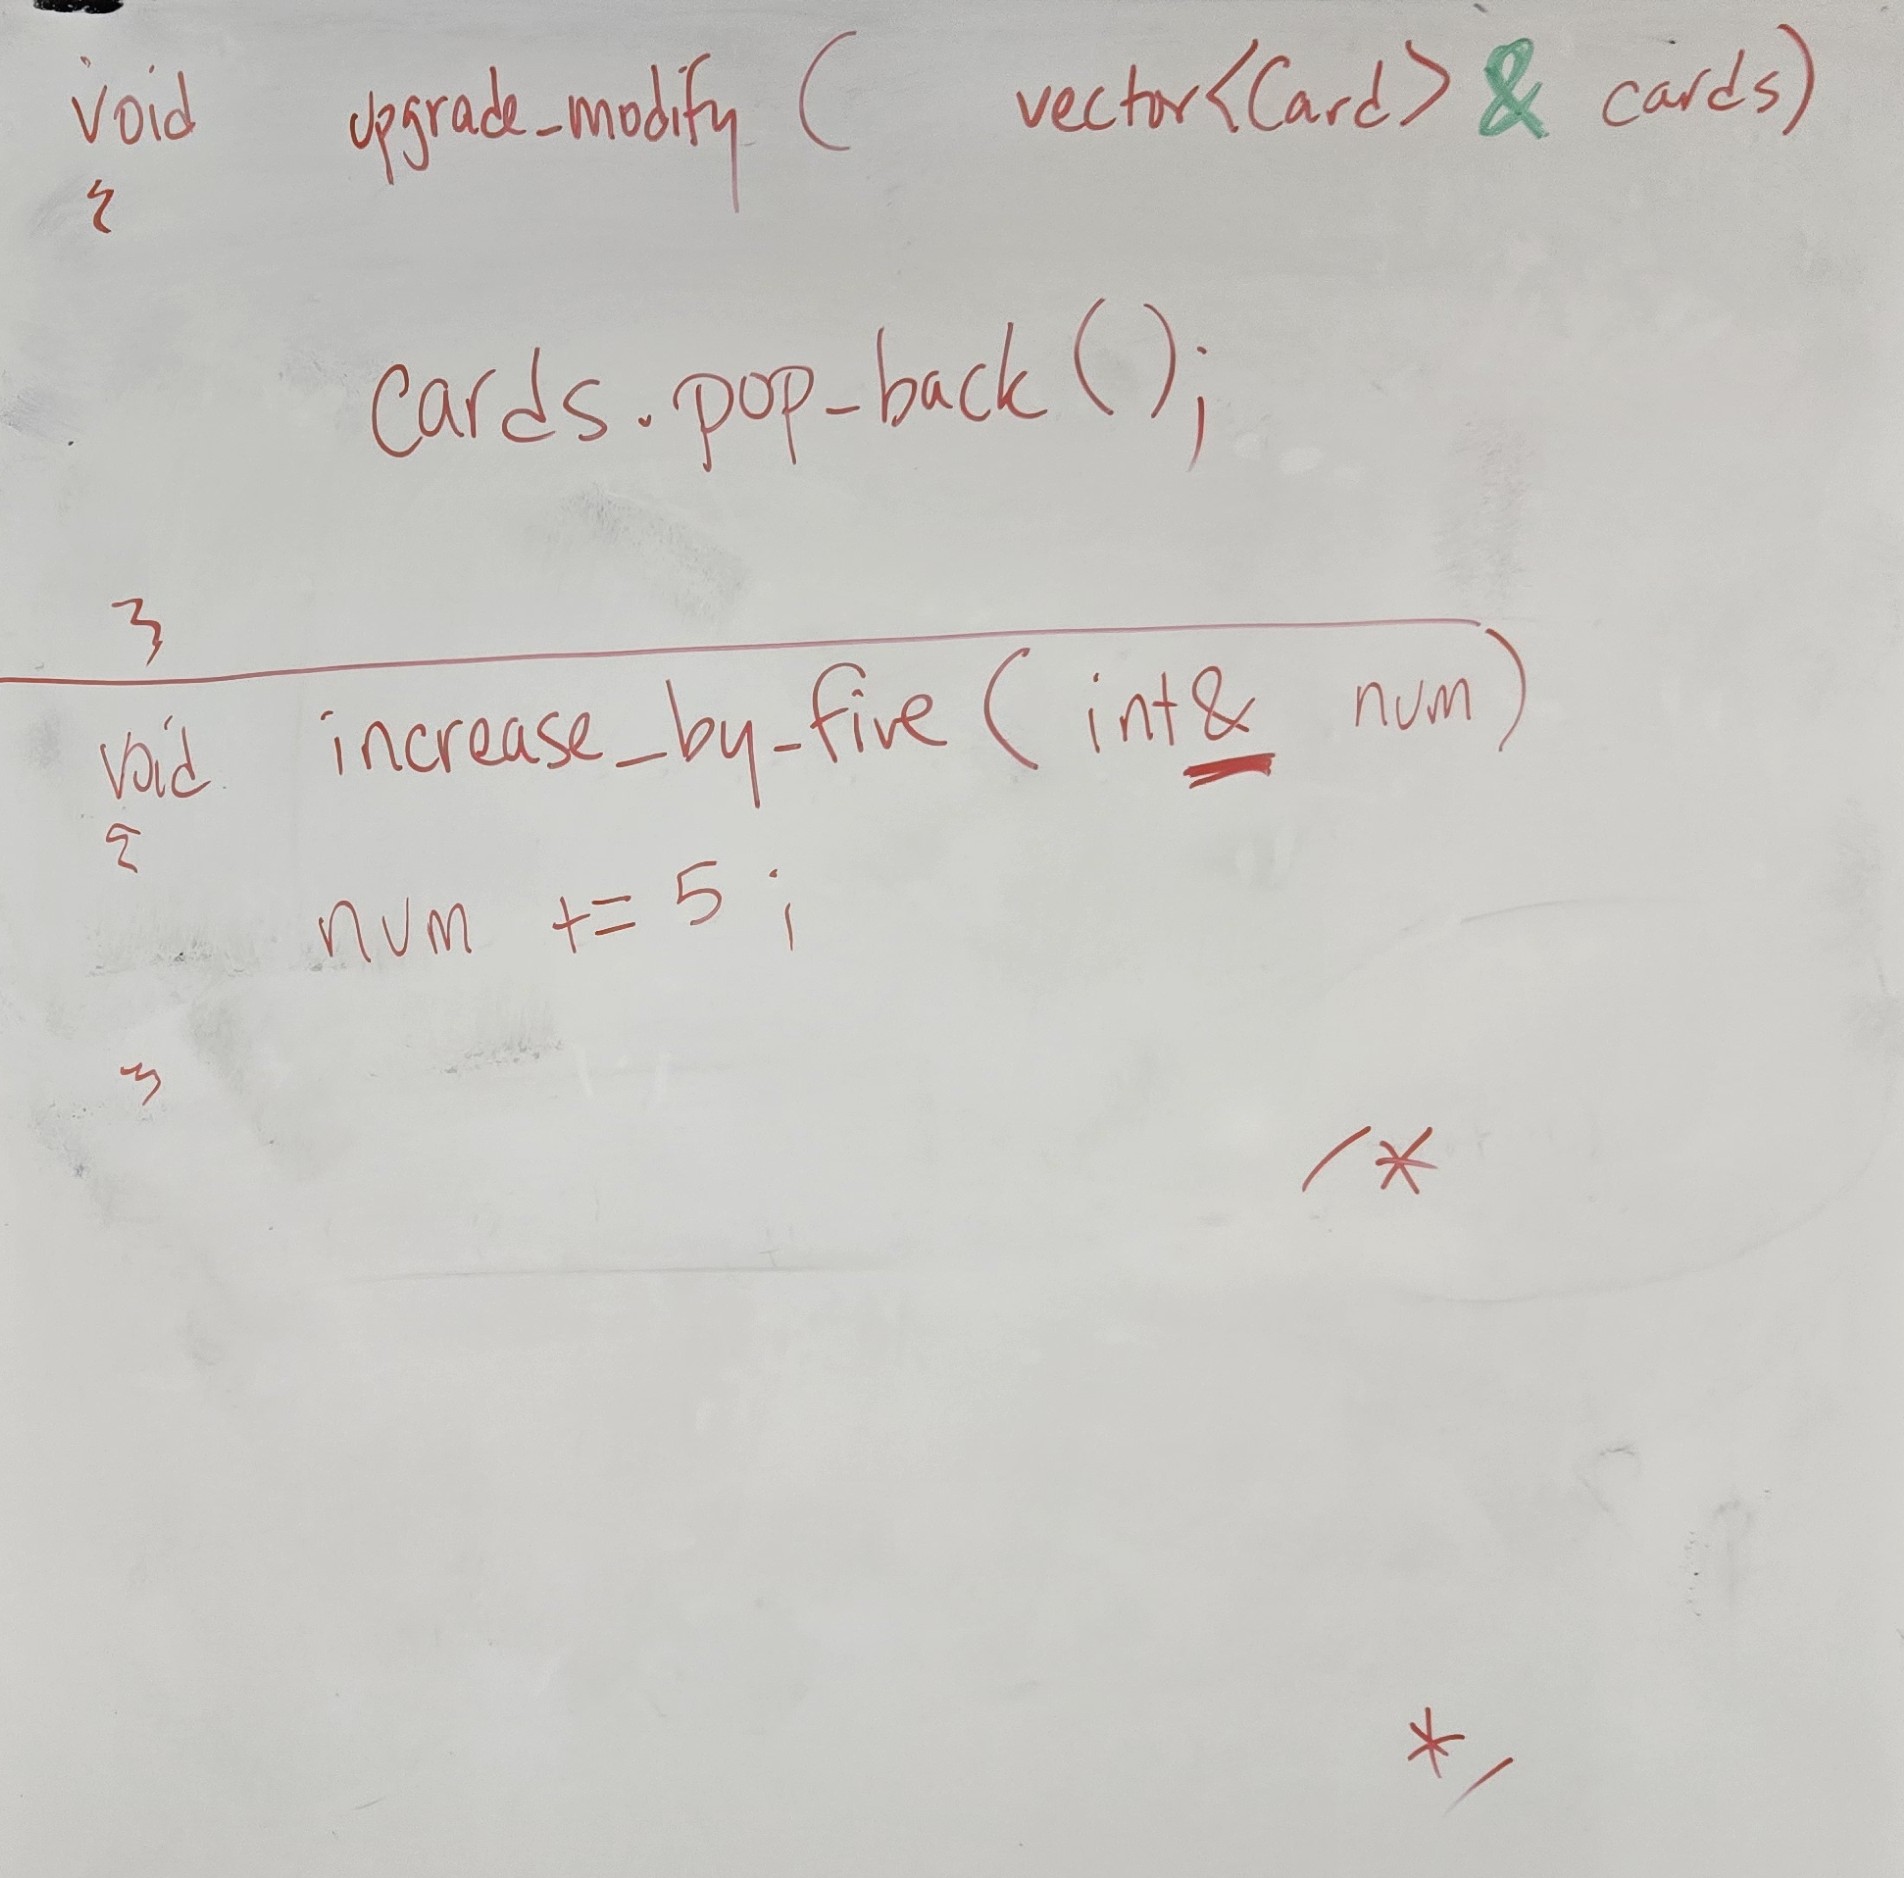 void upgrade_modify ( vector<Card> & cards)
{
cards.pop_back();
}
void increase_by_five ( int& num)
{
num += 5 ;
}
/*
*/